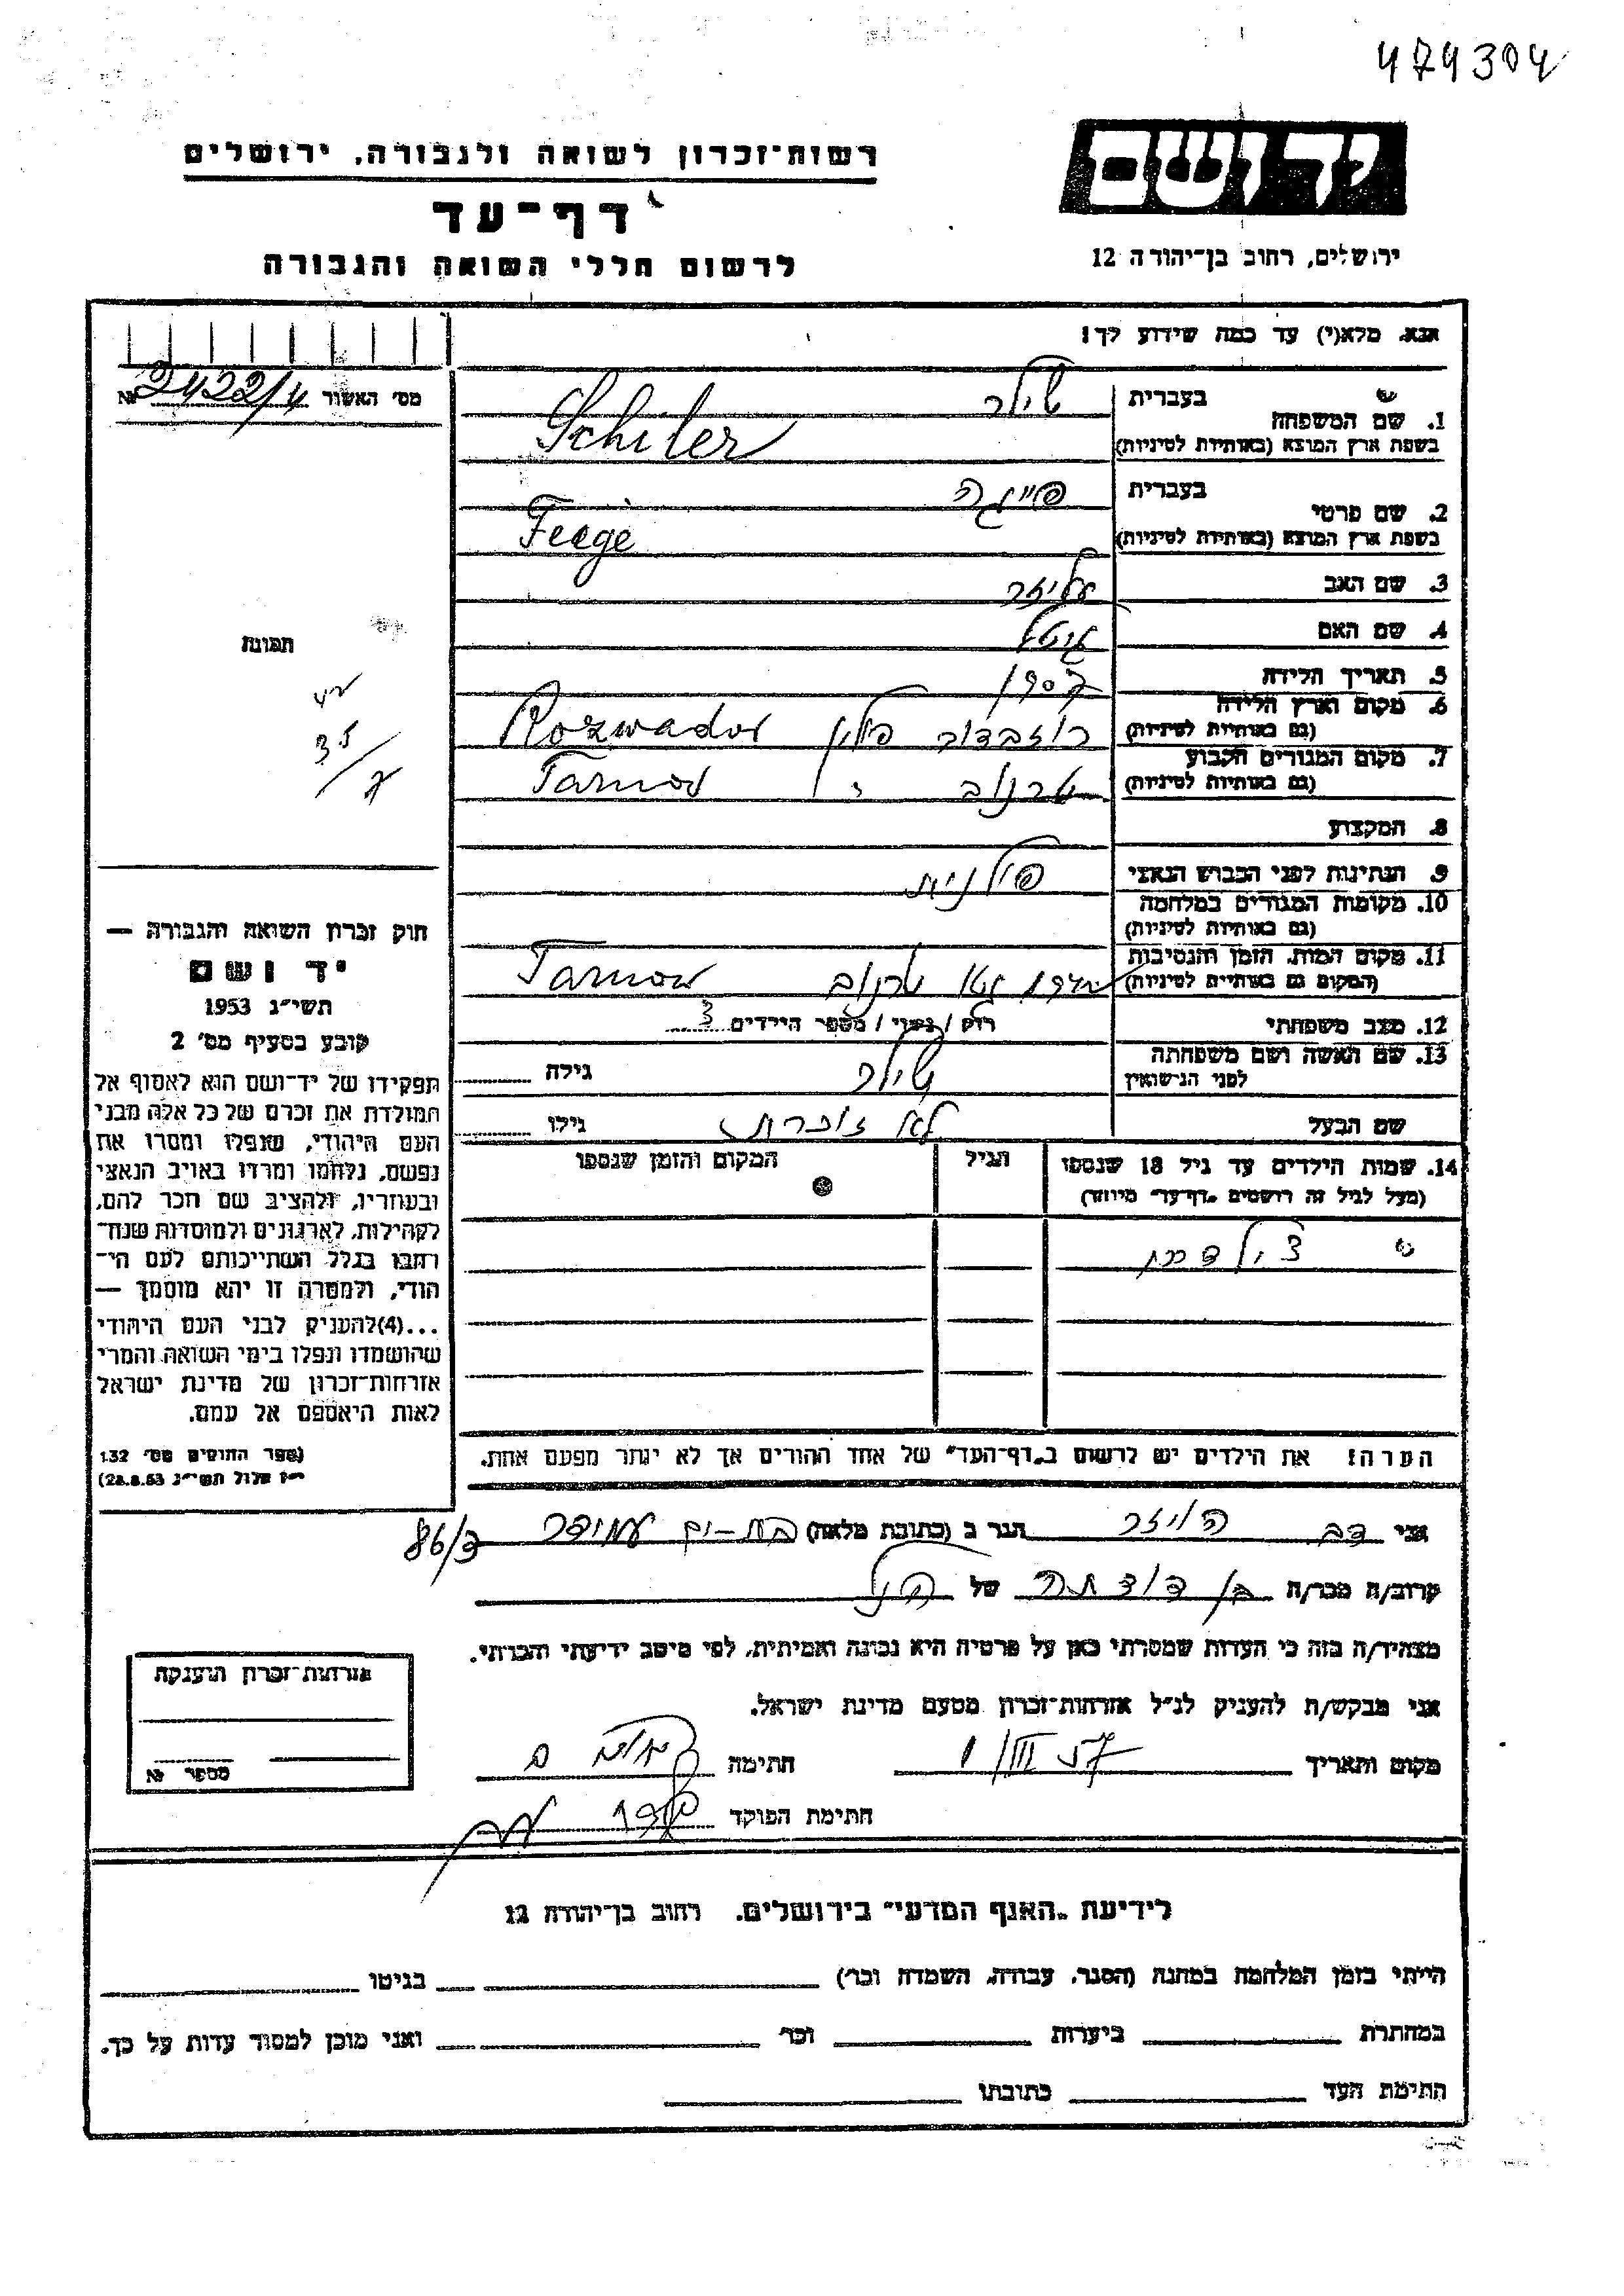 474304
יד ושם
רשות־זכרון לשואה ולגבורה, ירושלים
דף־עד
לרשום חללי השואה והגבורה
ירושלים, רחוב בן־יהודה 12
אנא, מלא(י) עד כמה שידוע לך!
מס׳ האשור № 2422/4
1. שם המשפחה בעברית שילר
בשפת ארץ המוצא (באותיות לטיניות) Schiler
2. שם פרטי בעברית פייגה
בשפת ארץ המוצא (באותיות לטיניות) Feege
3. שם האב אליעזר
4. שם האם גיטל
5. תאריך הלידה 1907
6. מקום וארץ הלידה (גם באותיות לטיניות) רוזבדוב פולין Rozwadow
7. מקום המגורים הקבוע (גם באותיות לטיניות) טרנוב Tarnow
8. המקצוע
9. הנתינות לפני הכבוש הנאצי פולנית
10. מקומות המגורים במלחמה (גם באותיות לטיניות)
11. מקום המות, הזמן והנסיבות (המקום גם באותיות לטיניות) גטו טרנוב Tarnow
12. מצב משפחתי רווק / נשוי / מספר הילדים 3
13. שם האשה ושם משפחתה לפני הנישואין שילר גילה
שם הבעל לא זוכרת גילו
14. שמות הילדים עד גיל 18 שנספו
(מעל לגיל זה רושמים „דף־עד״ מיוחד)
הגיל
המקום והזמן שנספו
הערה! את הילדים יש לרשום ב„דף־העד״ של אחד ההורים אך לא יותר מפעם אחת.
תמונה
חוק זכרון השואה והגבורה —
יד ושם
תשי״ג 1953
קובע בסעיף מס׳ 2
תפקידו של יד־ושם הוא לאסוף אל
המולדת את זכרם של כל אלה מבני
העם היהודי, שנפלו ומסרו את
נפשם, נלחמו ומרדו באויב הנאצי
ובעוזריו, ולהציב שם וזכר להם,
לקהילות, לארגונים ולמוסדות שנח־
רבו בגלל השתייכותם לעם הי־
הודי, ולמטרה זו יהא מוסמך —
...(4) להעניק לבני העם היהודי
שהושמדו ונפלו בימי השואה והמרי
אזרחות־זכרון של מדינת ישראל
לאות היאספם אל עמם.
(ספר החוקים מס׳ 132
י״ז אלול תשי״ג 28.8.53)
אני דב הויזר הגר ב (כתובת מלאה) בת-ים עמידר 86/3
קרוב/ה מכר/ה בן דודתה של הנ״ל
מצהיר/ה בזה כי העדות שמסרתי כאן על פרטיה היא נכונה ואמיתית, לפי מיטב ידיעתי והכרתי.
אני מבקש/ת להעניק לנ״ל אזרחות־זכרון מטעם מדינת ישראל.
מקום ותאריך 1/III 57 חתימה
חתימת הפוקד
אזרחות־זכרון הוענקה
מספר №
לידיעת „האגף המדעי״ בירושלים, רחוב בן־יהודה 12
הייתי בזמן המלחמה במחנה (הסגר, עבודה, השמדה וכו׳) בגיטו
במחתרת ביערות וכו׳ ואני מוכן למסור עדות על כך.
חתימת העד כתובתו